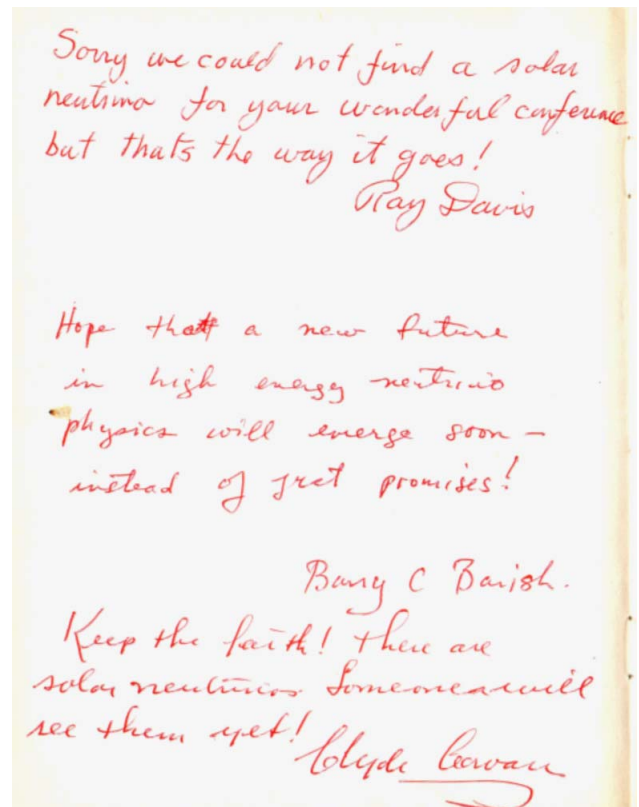 Sorry we could not find a solar
neutrino for your wonderful conference
but thats the way it goes!
Ray Davis
Hope that a new future
in high energy neutrino
physics will emerge soon –
instead of just promises!
Barry C Barish.
Keep the faith! there are
solar neutrinos. Someone will
see them yet!
Clyde Cowan